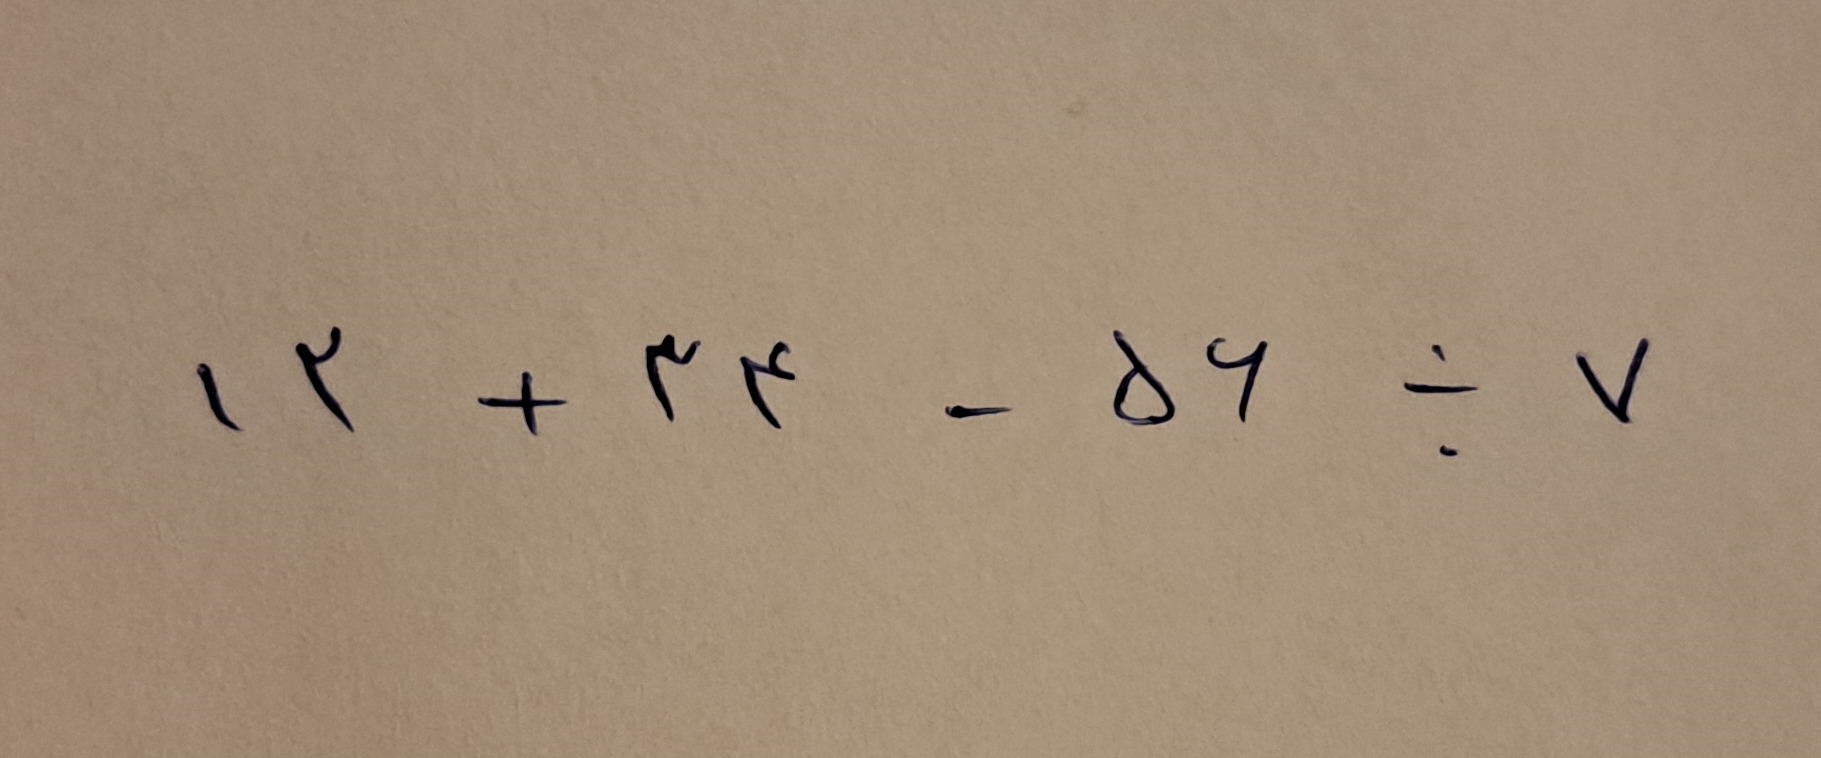 ۱۲ + ۳۴ - ۵۶ ÷ ۷